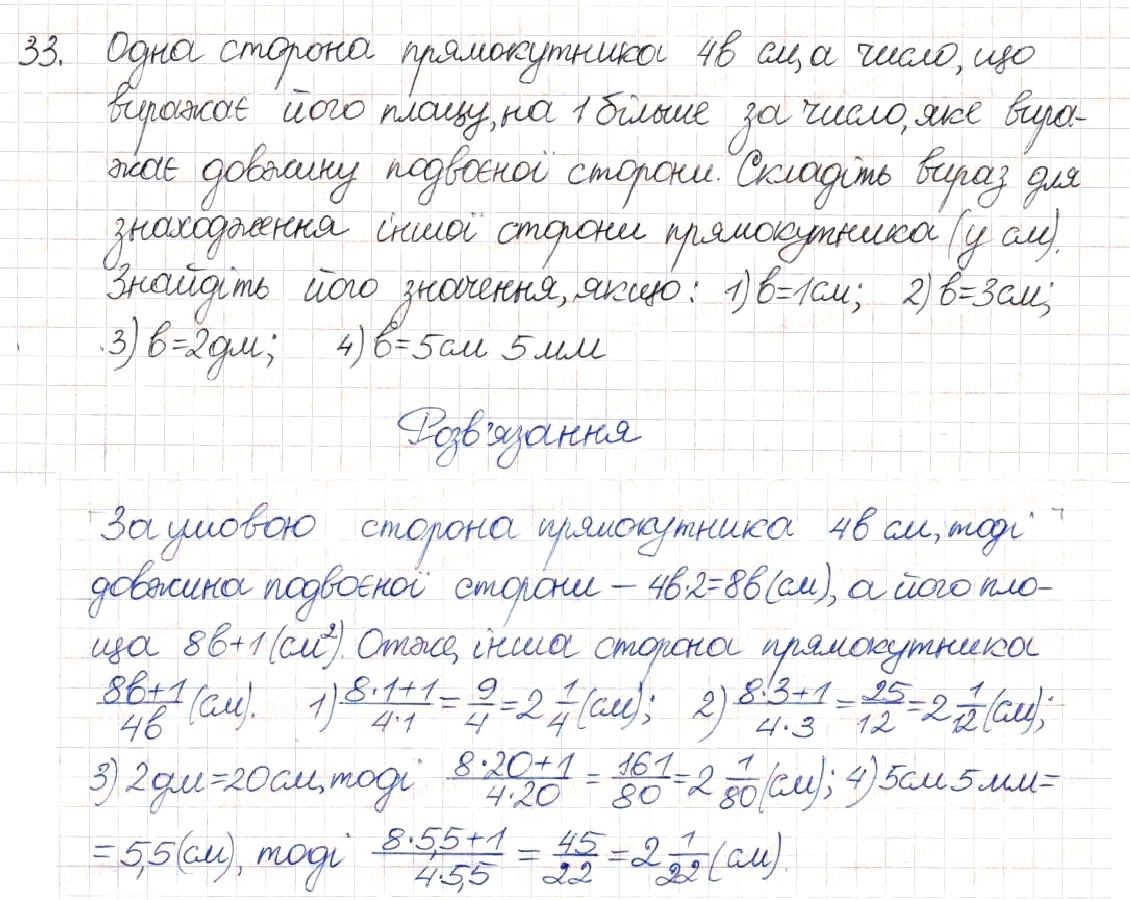 33. Одна сторона прямокутника 4в см, а число, що
виражає його площу, на 1 більше за число, яке вира-
жає довжину подвоєної сторони. Складіть вираз для
знаходження іншої сторони прямокутника (у см).
Знайдіть його значення, якщо: 1) в=1см; 2) в=3см;
3) в=2дм; 4) в=5см 5мм
Розв'язання
За умовою сторона прямокутника 4в см, тоді
довжина подвоєної сторони – 4в·2=8в(см), а його пло-
ща 8в+1(см²). Отже, інша сторона прямокутника
(8в+1)/(4в) (см). 1) (8·1+1)/(4·1) = 9/4 = 2 1/4 (см); 2) (8·3+1)/(4·3) = 25/12 = 2 1/12 (см);
3) 2дм=20см, тоді (8·20+1)/(4·20) = 161/80 = 2 1/80 (см); 4) 5см 5мм=
=5,5(см), тоді (8·5,5+1)/(4·5,5) = 45/22 = 2 1/22 (см)